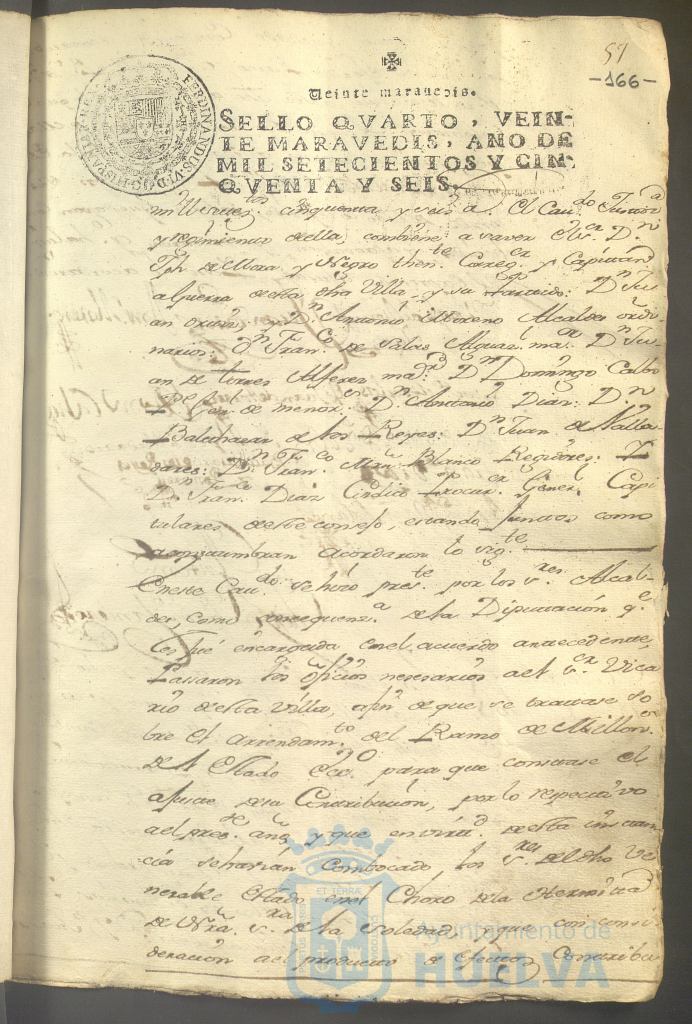 59
-166-
FERDINANDUS VI D G HISPANIAR REX
Veinte maravedis.
SELLO QVARTO, VEIN-
TE MARAVEDIS, AÑO DE
MIL SETECIENTOS Y CIN-
QVENTA Y SEIS.
mill setes.tos cinquenta y seis a. El Cau.do Justicia
y regimiento della, combiene a saver el s.r D.n
Jph de Mora y Negro then.te Correg.or y Capitan
a guerra desta dha Villa, y su Partido: D.n Ju
an y D.n Antonio Moreno Alcaldes ordi
narios: D.n Fran.co de Salas Alguaz.l ma.or D.n Ju
an de torres Alferez ma.or D.n Domingo Calbo
P.e Gen. de menor.s D.n Antonio Diaz: D.n
Balthazar de los Reyes: D.n Juan de Valla
dares: D.n Fran.co Mrn Blanco Regidores: Y
D.n Fran.co Diaz Sindico Procur.or Gener.l Capi
tulares deste consejo, estando juntos como
acostumbran acordaron lo sig.te
En este Cau.do se hizo pres.te por los s.res Alcal-
des, como consequenz.a de la Diputación q.e
les fué encargada en el acuerdo antecedente,
Passaron los ofizios nesesarios a el s.or Vica
rio desta Villa, afin de que se tratase so
bre el arriendam.to del Ramo de Millon.s
de el Estado Ecc.o para que constase el
ajuste de su Contribucion, por lo respectivo
a el pres.te año, y que en virtd. desta instan
cia se havian combocado los s.res del dho Ve
nerable Estado en el Choro de la Hermita
de Nra. s.ra de la Soledad, y que con consi
deracion a el producto de efectos Contribu
ET TERRÆ
Ayuntamiento de
HUELVA